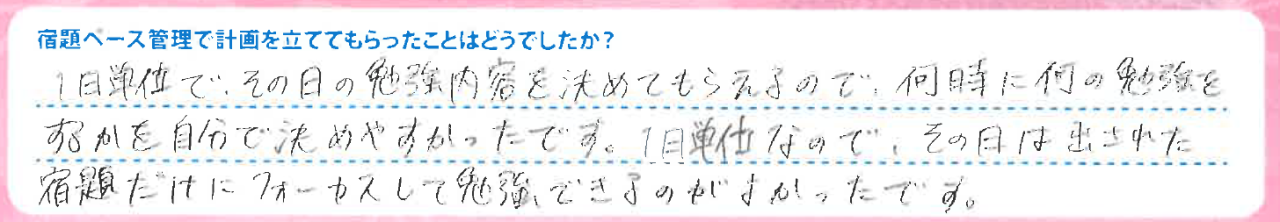 宿題ペース管理で計画を立ててもらったことはどうでしたか？
1日単位で、その日の勉強内容を決めてもらえるので、何時に何の勉強を
するかを自分で決めやすかったです。1日単位なので、その日は出された
宿題だけにフォーカスして勉強できるのがよかったです。